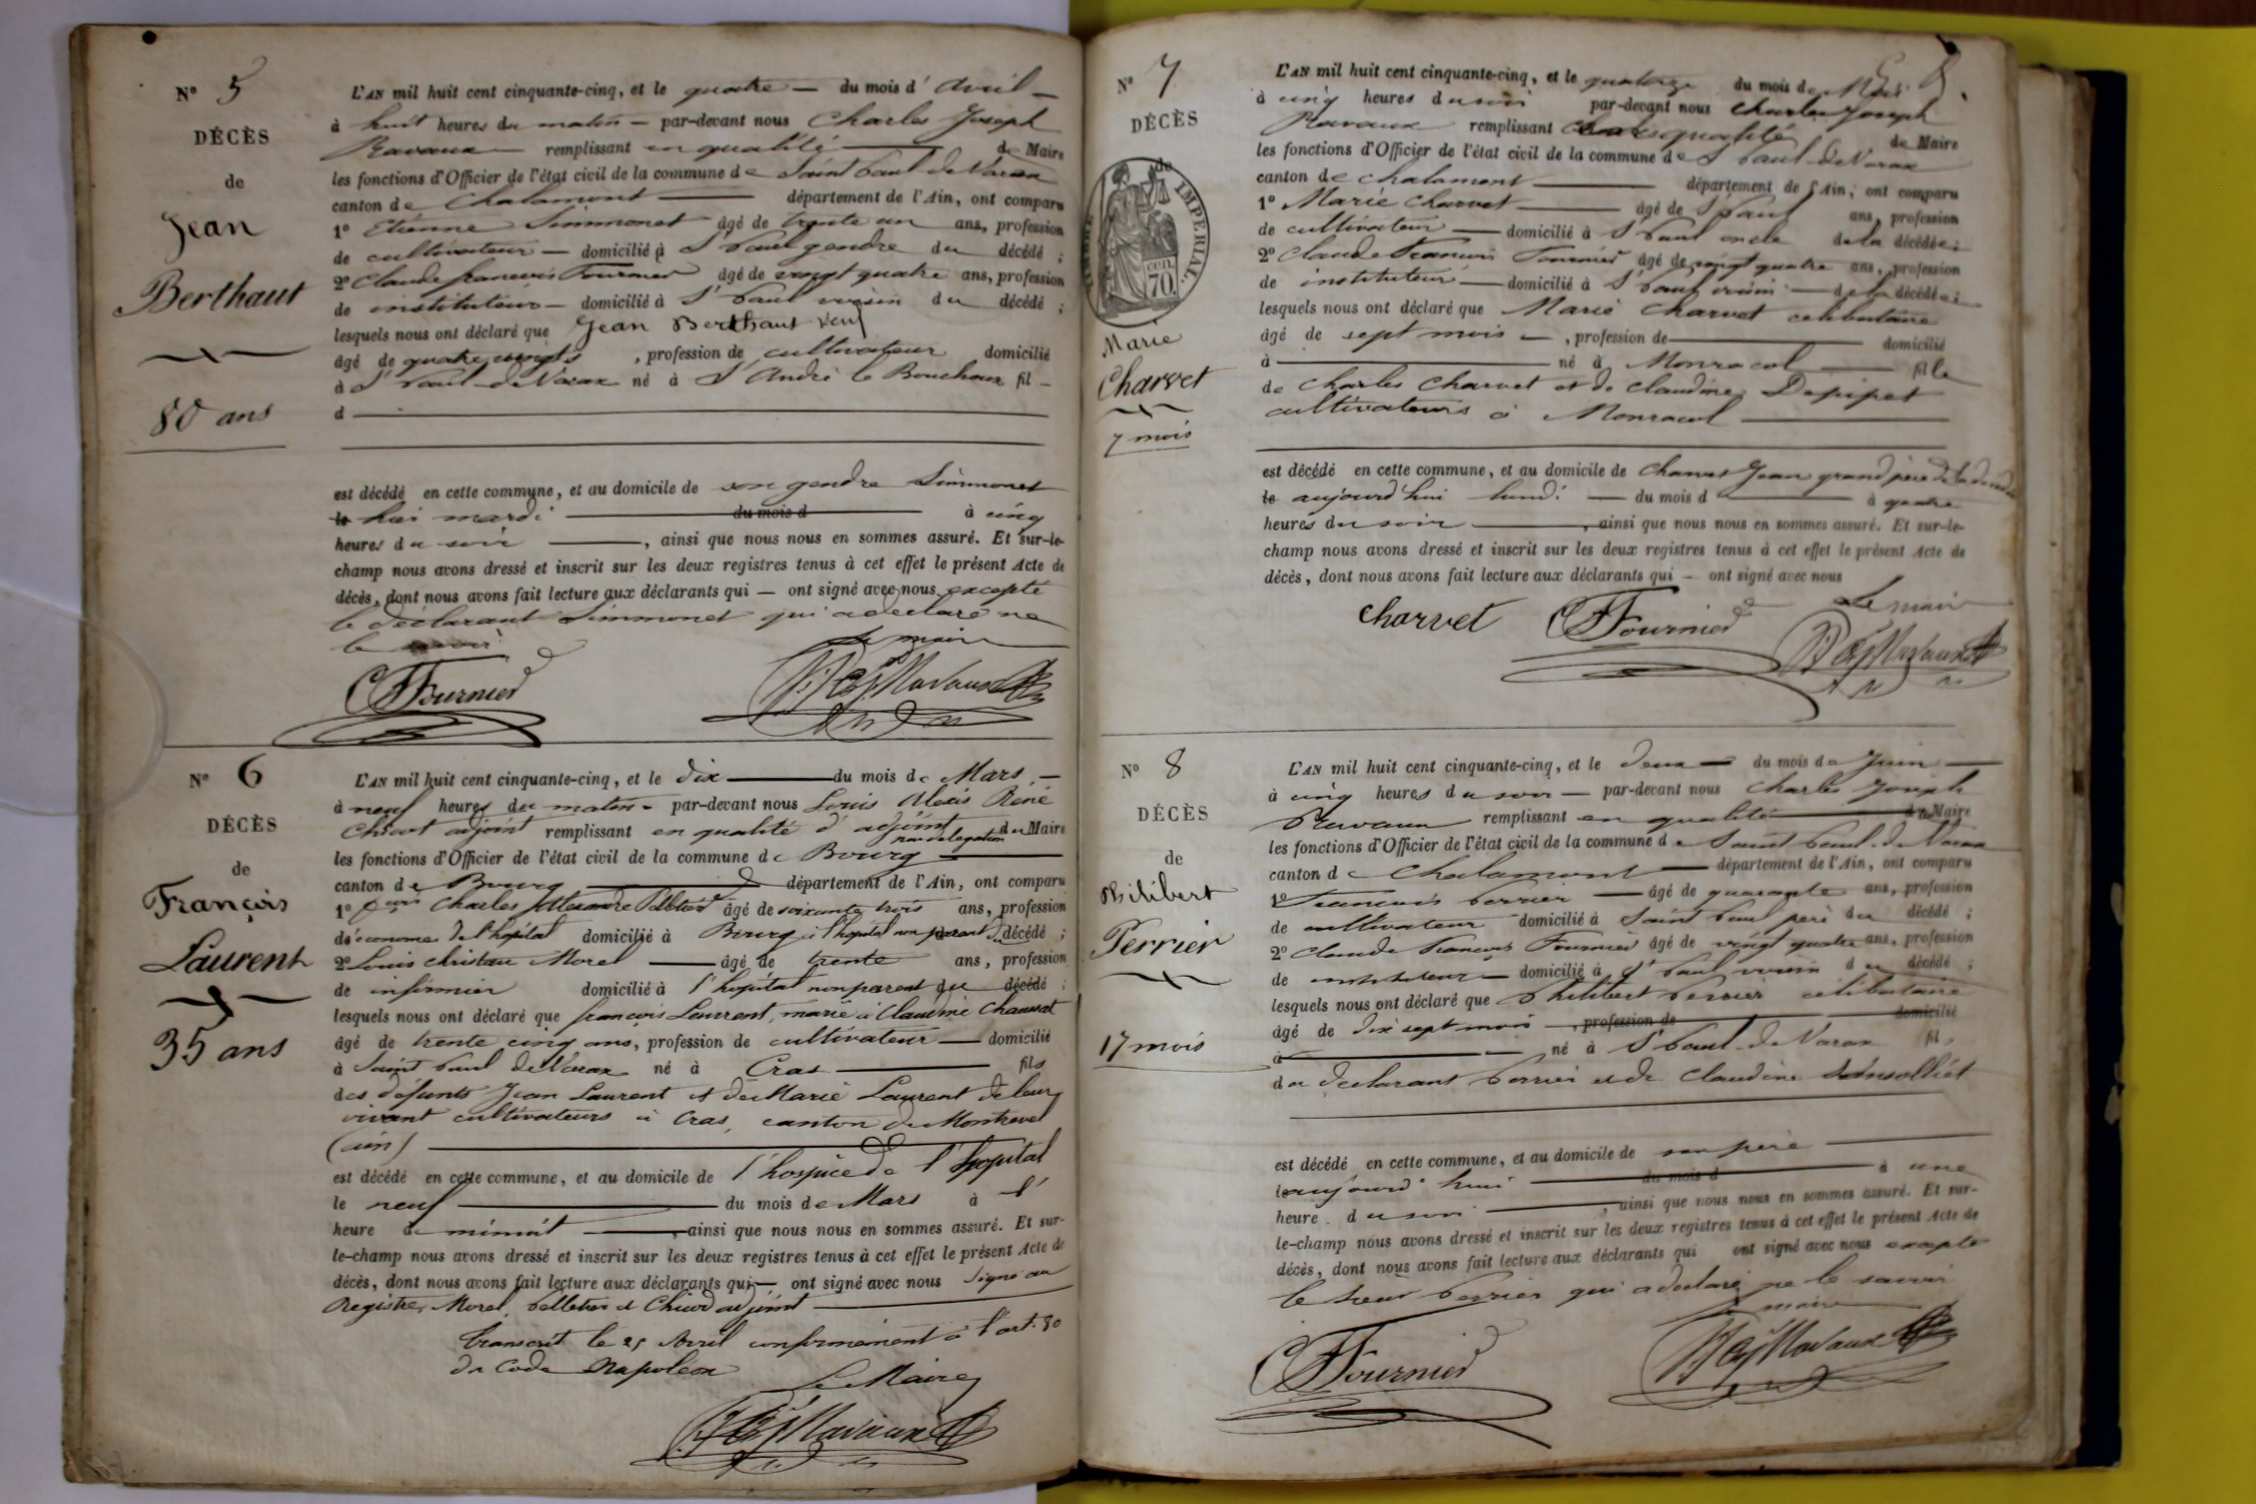 N° 5
DÉCÈS
de
Jean
Berthaut
80 ans
L'AN mil huit cent cinquante-cinq, et le quatre — du mois d' avril —
à huit heures du matin — par-devant nous Charles Joseph
Ravaux — remplissant en qualité — de Maire
les fonctions d'Officier de l'état civil de la commune de Saint Paul de Varax
canton de Chalamont — département de l'Ain, ont comparu
1° Etienne Simmonet âgé de trente un ans, profession
de cultivateur — domicilié à St Paul gendre du décédé ;
2° Claude françois Fournier âgé de vingt quatre ans, profession
de instituteur — domicilié à St Paul voisin du décédé ;
lesquels nous ont déclaré que Jean Berthaut veuf
âgé de quatre vingts , profession de cultivateur domicilié
à St Paul de Varax né à St André le Bouchoux fil —
d —
est décédé en cette commune, et au domicile de son gendre Simmonet
le hui mardi — du mois d — à cinq
heures du soir —, ainsi que nous nous en sommes assuré. Et sur-le-
champ nous avons dressé et inscrit sur les deux registres tenus à cet effet le présent Acte de
décès, dont nous avons fait lecture aux déclarants qui — ont signé avec nous excepté
le déclarant Simmonet qui a déclaré ne
le savoir
Le maire
CF Fournier
N° 6
DÉCÈS
de
François
Laurent
35 ans
L'AN mil huit cent cinquante-cinq, et le dix — du mois de Mars —
à neuf heures du matin — par-devant nous Louis Alexis Réné
adjoint remplissant en qualité d'adjoint par délégation du Maire
les fonctions d'Officier de l'état civil de la commune de Bourg —
canton de Bourg — département de l'Ain, ont comparu
1° Charles Alexandre Pelletier âgé de soixante trois ans, profession
d'économe de l'hôpital domicilié à Bourg à l'hôpital non parent du décédé ;
2° Louis Christau Morel — âgé de trente ans, profession
de infirmier domicilié à l'hôpital non parent du décédé ;
lesquels nous ont déclaré que françois Laurent, marié à Claudine
âgé de trente cinq ans, profession de cultivateur — domicilié
à Saint Paul de Varax né à Cras — fils
des défunts Jean Laurent et de Marie Laurent de leur
vivant cultivateurs à Cras, canton de Montrevel
(ain) —
est décédé en cette commune, et au domicile de l'hospice de l'hopital
le neuf — du mois de Mars à l'
heure de minuit —, ainsi que nous nous en sommes assuré. Et sur-
le-champ nous avons dressé et inscrit sur les deux registres tenus à cet effet le présent Acte de
décès, dont nous avons fait lecture aux déclarants qui — ont signé avec nous signé au
Registre, Morel, Pelletier et adjoint —
transcrit le 25 Avril conformément à l'art. 80
du Code Napoléon
Le Maire
N° 7
DÉCÈS
de
IMPERIAL
70 cen
Marie
Charvet
7 mois
L'AN mil huit cent cinquante-cinq, et le quatorze du mois de Mai
à cinq heures du soir par-devant nous Charles Joseph
Ravaux remplissant qualité de Maire
les fonctions d'Officier de l'état civil de la commune de St Paul de Varax
canton de Chalamont — département de l'Ain, ont comparu
1° Marie Charvet — âgé de St Paul ans, profession
de cultivateur — domicilié à St Paul oncle de la décédée ;
2° Claude François Fournier âgé de vingt quatre ans, profession
de instituteur — domicilié à St Paul voisin — de la décédée ;
lesquels nous ont déclaré que Marie Charvet célibataire
âgé de sept mois —, profession de — domicilié
à — né à Monracol — fille
de Charles Charvet et de Claudine Depipet
cultivateurs à Monracol —
est décédé en cette commune, et au domicile de Charvet Jean grand père de la
le aujourd'hui lundi — du mois d — à quatre
heures du soir —, ainsi que nous nous en sommes assuré. Et sur-le-
champ nous avons dressé et inscrit sur les deux registres tenus à cet effet le présent Acte de
décès, dont nous avons fait lecture aux déclarants qui — ont signé avec nous
Le maire
Charvet CF Fournier
N° 8
DÉCÈS
de
Philibert
Perrier
17 mois
L'AN mil huit cent cinquante-cinq, et le deux — du mois de Juin —
à cinq heures du soir — par-devant nous Charles Joseph
Ravaux — remplissant en qualité — de Maire
les fonctions d'Officier de l'état civil de la commune de Saint Paul de Varax
canton de Chalamont — département de l'Ain, ont comparu
1° François Perrier — âgé de quarante ans, profession
de cultivateur domicilié à Saint Paul père du décédé ;
2° Claude François Fournier âgé de vingt quatre ans, profession
de instituteur — domicilié à St Paul voisin du décédé ;
lesquels nous ont déclaré que Philibert Perrier célibataire
âgé de dix sept mois —, profession de — domicilié
à — né à St Paul de Varax fils
du déclarant Perrier et de Claudine
est décédé en cette commune, et au domicile de son père —
le aujourd'hui — du mois d — à une
heure du soir —, ainsi que nous nous en sommes assuré. Et sur-
le-champ nous avons dressé et inscrit sur les deux registres tenus à cet effet le présent Acte de
décès, dont nous avons fait lecture aux déclarants qui ont signé avec nous excepté
le sieur Perrier qui a déclaré ne le savoir
Le maire
CF Fournier